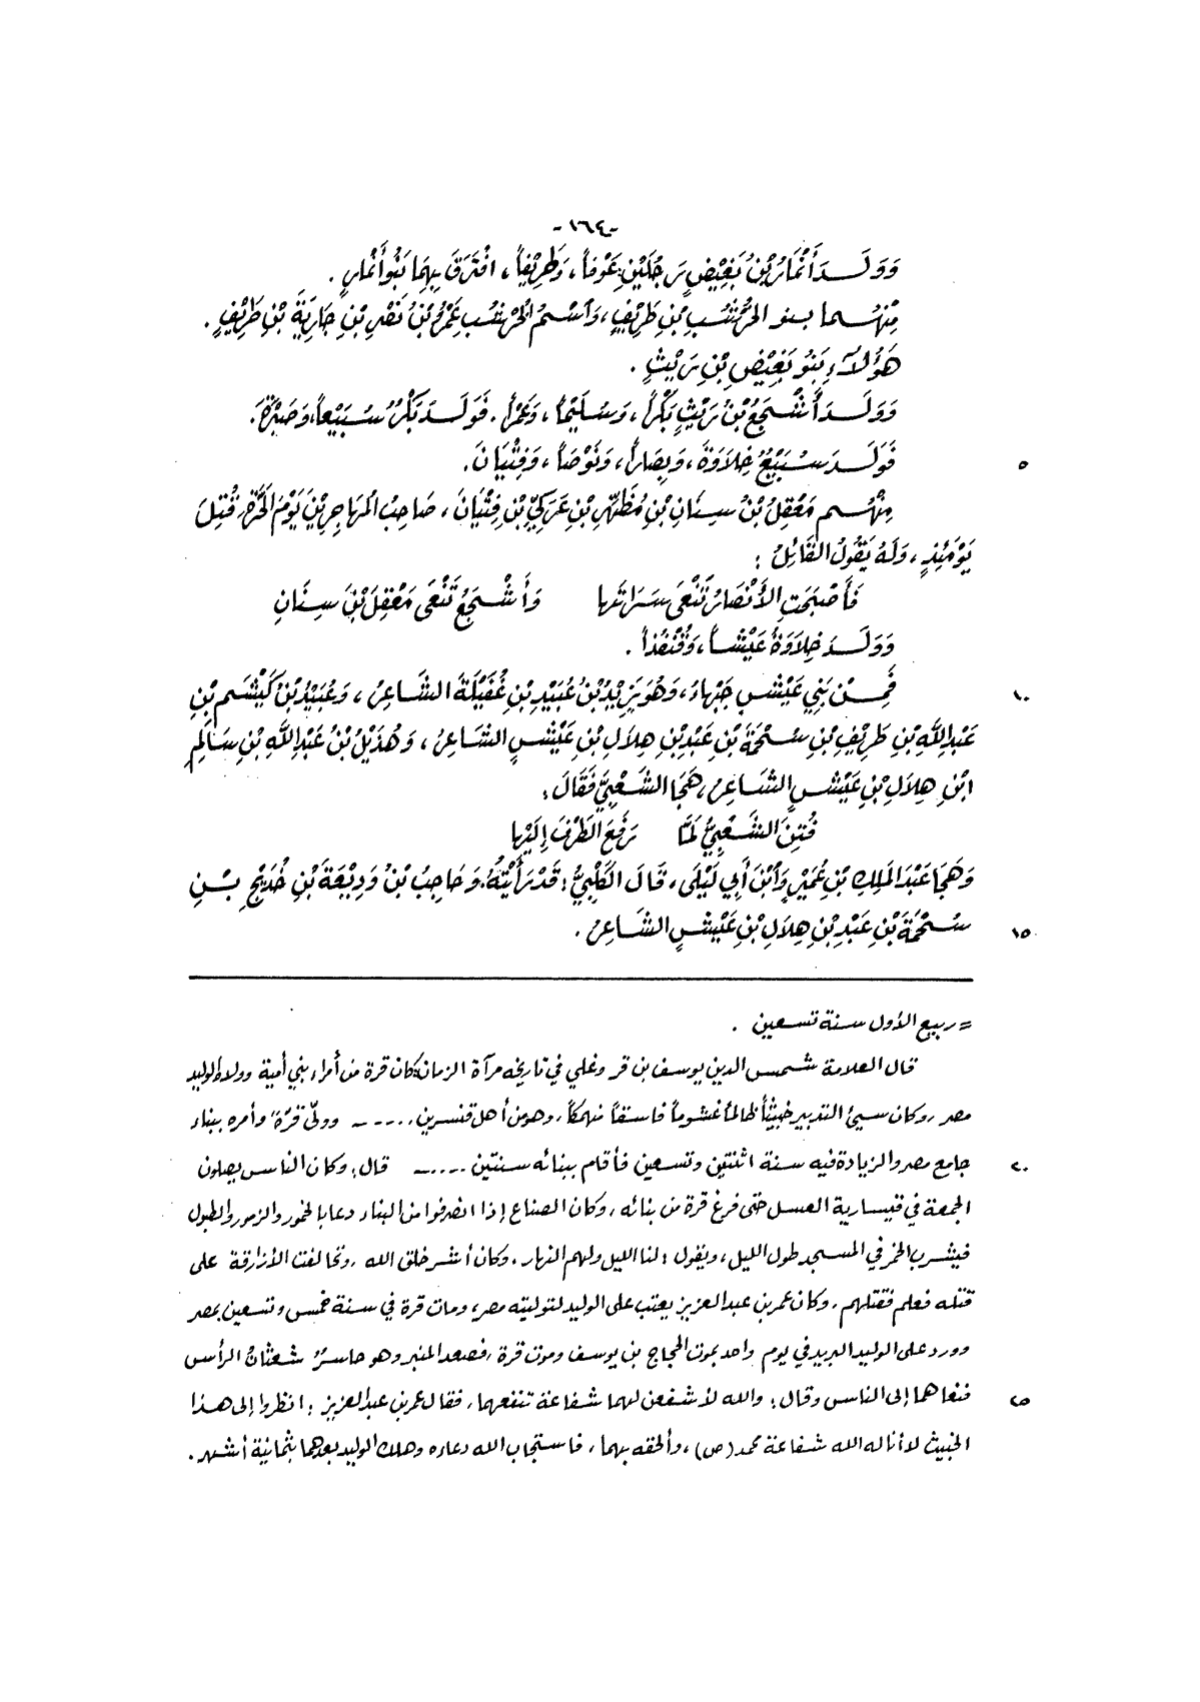 -١٦٤-
وَوَلَدَ أَنْمَارُ بْنُ بَغِيْضٍ رَجُلَيْنِ: عَوْفاً، وَطَرِيْفاً، افْتَرَقَ بِهِمَا بَنُو أَنْمَارٍ.
مِنْهُمَا بنو الحُرْنُشُبِ بْنِ طَرِيْفٍ، وَاسْمُ الحُرْنُشُبِ عَمْرُو بْنُ نَصْرِ بْنِ جَارِيَةَ بْنِ طَرِيْفٍ.
هَؤُلَاَءِ بَنُو بَغِيْضِ بْنِ رَيْثٍ.
وَوَلَدَ أَشْجَعُ بْنُ رَيْثٍ بَكْراً، وَسُلَيْماً، وَعَمْراً. فَوَلَدَ بَكْرٌ سُبَيْعاً، وَصَبْرَةَ.
٥ فَوَلَدَ سُبَيْعٌ خِلَاوَةَ، وَبِصَاراً، وَنَوْصاً، وَفِتْيَانَ.
مِنْهُم مَعْقِلُ بْنُ سِنَانِ بْنِ مُظَهِّرِ بْنِ عَرَكِيِّ بْنِ فِتْيَانَ، صَاحِبُ المُهَاجِرِيْنَ يَوْمَ الحَرَّةِ، قُتِلَ
يَوْمَئِذٍ، وَلَهُ يَقُولُ القَائِلُ:
فَأَصْبَحَتِ الأَنْصَارُ تَنْعَى سَرَاتَهَا وَأَشْجَعُ تَنْعَى مَعْقِلَ بْنَ سِنَانِ
وَوَلَدَ خِلَاوَةُ عَيْشاً، وَقُنْفُذاً.
١٠ فَمِنْ بَنِي عَيْشٍ جَبْهَاءُ، وَهُوَ يَزِيْدُ بْنُ عُبَيْدِ بْنِ غُفَيْلَةَ الشَّاعِرُ، وَعُبَيْدُ بْنُ كَيْشَمِ بْنِ
عَبْدِ اللَّهِ بْنِ طَرِيْفِ بْنِ سُحْمَةَ بْنِ عَبْدِ بْنِ هِلَالِ بْنِ عَيْشٍ الشَّاعِرُ، وَهُذَيْلُ بْنُ عَبْدِ اللَّهِ بْنِ سَالِمِ
ابْنِ هِلَالِ بْنِ عَيْشٍ الشَّاعِرُ، هَجَا الشَّعْبِيَّ فَقَالَ:
فُتِنَ الشَّعْبِيُّ لَمَّا رَفَعَ الطَّرْفَ إِلَيْهَا
وَهَجَا عَبْدَ المَلِكِ بْنَ عُمَيْرٍ وَابْنَ أَبِي لَيْلَى، قَالَ الكَلْبِيُّ: قَدْ رَأَيْتُهُ. وَحَاجِبُ بْنُ وَدِيْعَةَ بْنِ خُدَيْجِ بْنِ
١٥ سُحْمَةَ بْنِ عَبْدِ بْنِ هِلَالِ بْنِ عَيْشٍ الشَّاعِرُ.
= ربيع الأول سنة تسعين .
قال العلامة شمس الدين يوسف بن قر وغلي في تاريخه مرآة الزمان: كان قرة من أمراء بني أمية وولاه الوليد
مصر، وكان سيئ التدبير خبيثاً ظالماً غشوماً فاسقاً منهمكاً، وهو من أهل قنسرين..... وولّى قرّة، وأمره ببناء
٢٠ جامع مصر والزيادة فيه سنة اثنتين وتسعين فأقام ببنائه سنتين..... قال: وكان الناس يصلون
الجمعة في قيسارية العسل حتى فرغ قرة من بنائه، وكان الصناع إذا انصرفوا من البناء دعا بالخمور والزمور والطبول
فيشرب الخمر في المسجد طول الليل، ويقول: لنا الليل ولهم النهار، وكان أشر خلق الله، وتحالفت الأزارقة على
قتله فعلم فقتلهم، وكان عمر بن عبد العزيز يعتب على الوليد لتوليته مصر، ومات قرة في سنة خمس وتسعين بمصر
وورد على الوليد البريد في يوم واحد بموت الحجاج بن يوسف وموت قرة، فصعد المنبر وهو حاسرٌ شعثانُ الرأس
٢٥ فنعاهما إلى الناس وقال: والله لأشفعن لهما شفاعة تنفعهما، فقال عمر بن عبد العزيز: انظروا إلى هذا
الخبيث لا أناله الله شفاعة محمد (ص)، وألحقه بهما، فاستجاب الله دعاءه وهلك الوليد بعدهما بثمانية أشهر.